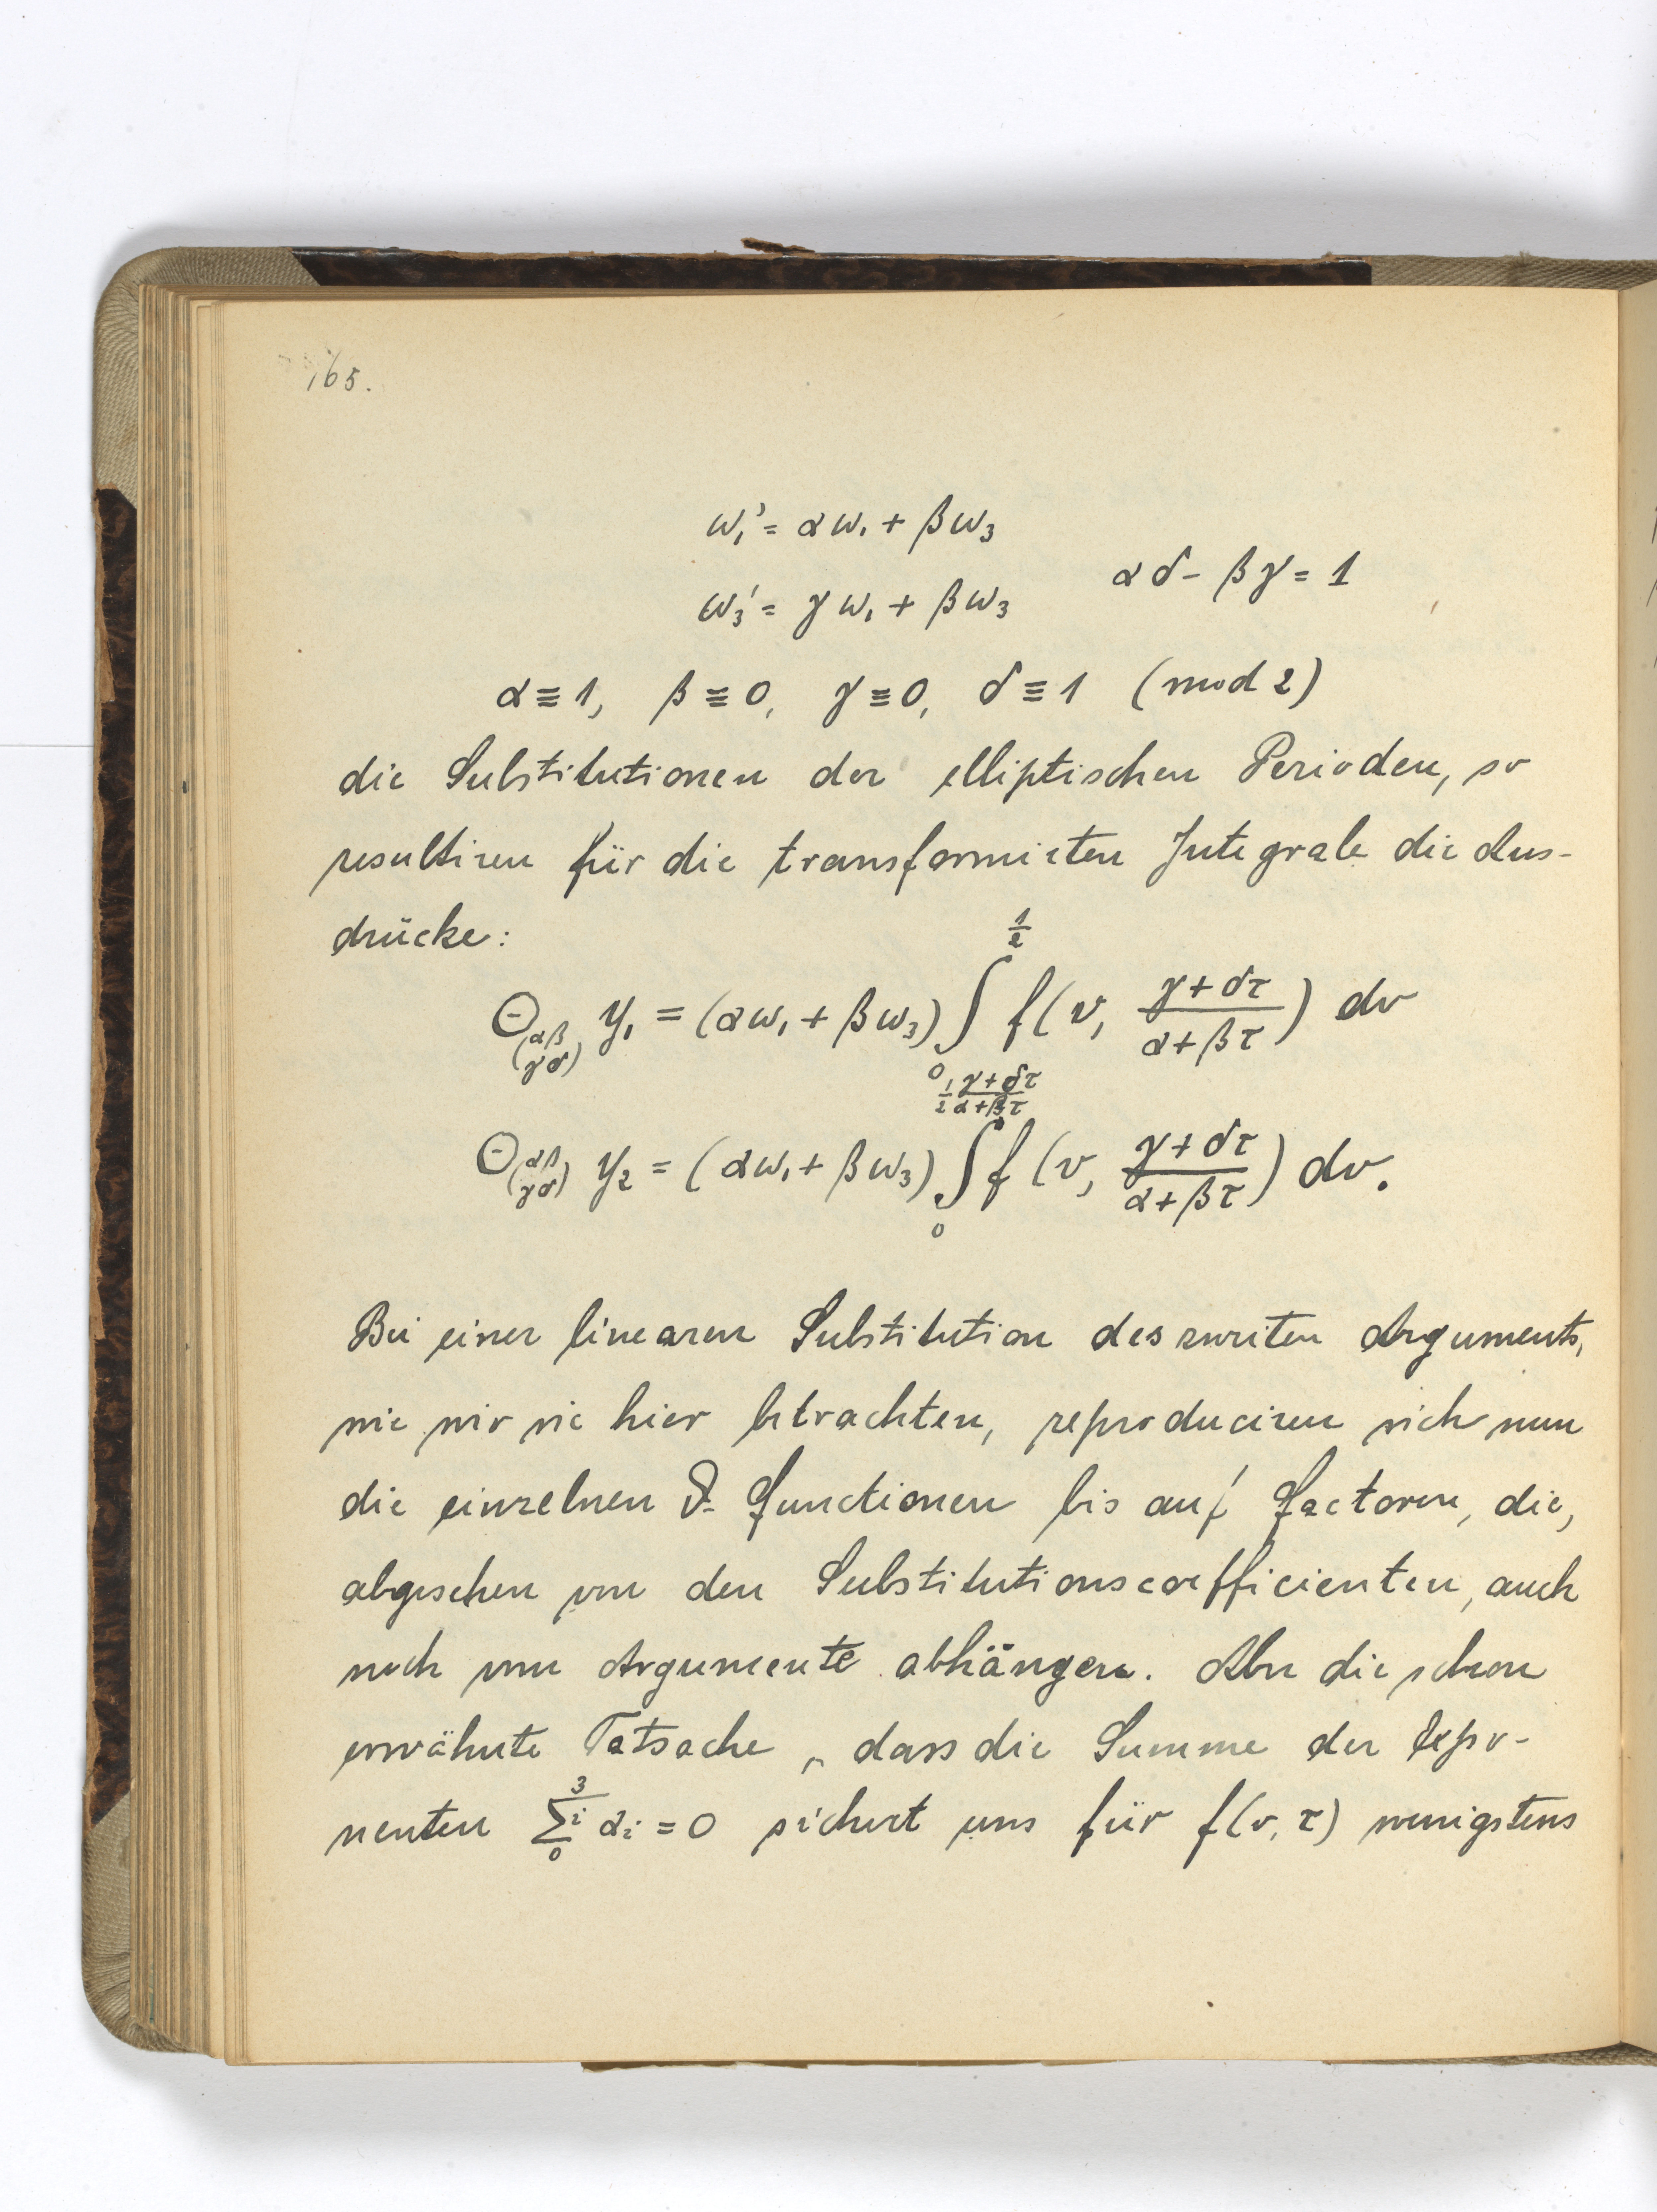 165.
ω₁' = αω₁ + βω₃
αδ - βγ = 1
ω₃' = γω₁ + βω₃
α ≡ 1, β ≡ 0, γ ≡ 0, δ ≡ 1 (mod 2)
die Substitutionen der elliptischen Perioden, so
resultiren für die transformirten Integrale die Aus-
drücke:
Θ_(αβ γδ) y₁ = (αω₁ + βω₃) ∫_0^{1/2} f(v, (γ+δτ)/(α+βτ)) dv
Θ_(αβ γδ) y₂ = (αω₁ + βω₃) ∫_0^{1/2 (γ+δτ)/(α+βτ)} f(v, (γ+δτ)/(α+βτ)) dv.
Bei einer linearen Substitution des zweiten Arguments,
wie wir sie hier betrachten, reproduciren sich nun
die einzelnen ϑ-Functionen bis auf Factoren, die,
abgesehen von den Substitutionscoefficienten, auch
noch vom Argumente abhängen. Aber die schon
erwähnte Tatsache, dass die Summe der Expo-
nenten Σ_0^3 i αᵢ = 0 sichert uns für f(v, τ) wenigstens